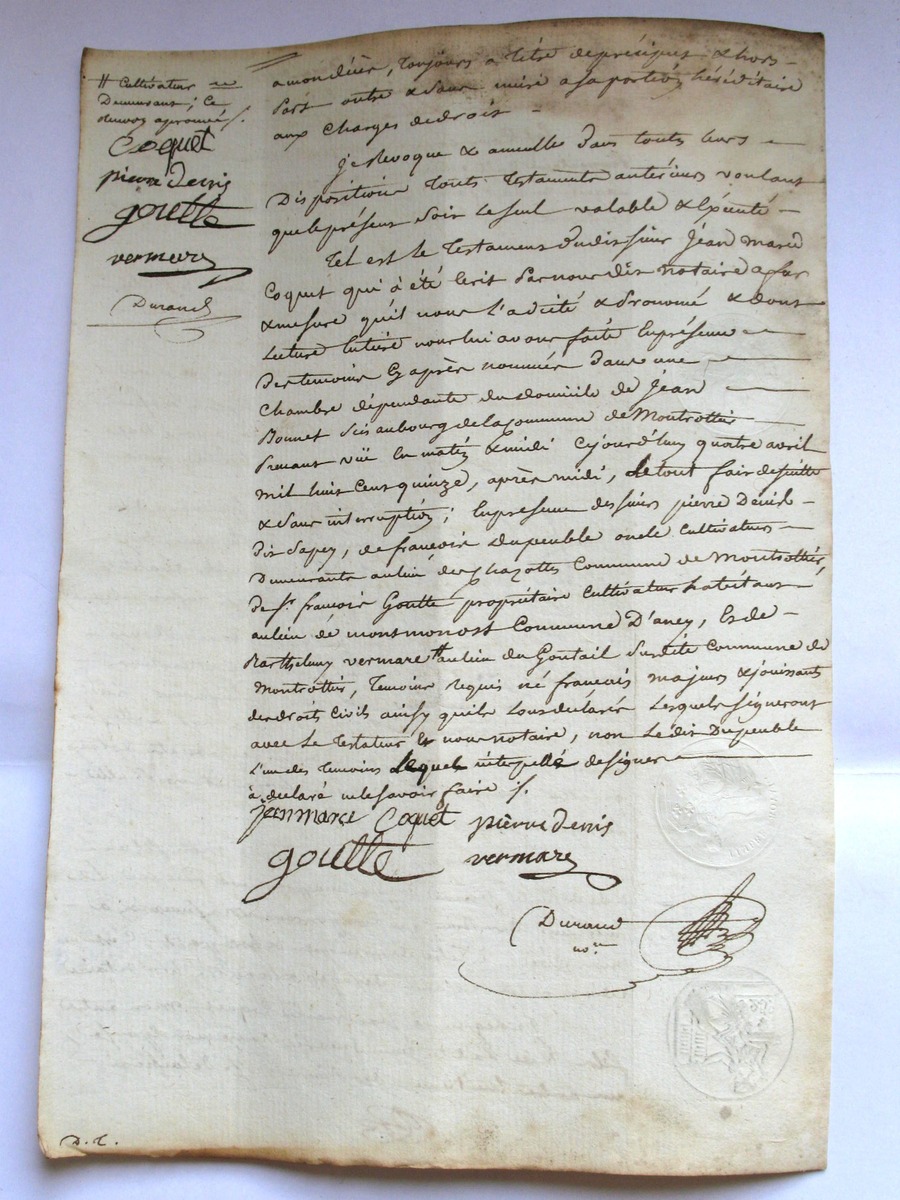 # Cultivateur
Demeurant; Ce
Renvoy aprouvé /.
Coquet
pierre Denis
goutte
vermare
Durand
a mon décès, toujours a titre de préciput & hors
Part outre & Sans a sa portion héréditaire
aux Charges de droit -
Je Revoque & annulle Dans touts leurs
Dispositions touts testaments antérieurs voulant
que le présent soit le seul valable & Exécuté -
Tel est le testament dudit sieur Jean marie
Coquet qui à été Ecrit Par nous dit notaire a fur
& mesure qu'il nous l'a dicté & Prononcé & dont
Lecture Entière nous lui avons faite En présence
Des temoins Cy après nommés Dans une
Chambre dépendante du domicile de Jean
Bonnet Sis au bourg de la Commune de Montrottier
Prenant vüe En matin & midi Cejourd'huy quatre avril
mil huit Cent quinze, après midi, le tout fait de suitte
& sans interruption; En présence des sieurs pierre Denis
Dit Sapey, de françois Dupeuble oncle Cultivateurs
Demeurants au lieu de Chazotte Commune de Montrottier,
de Sr. françois Goutte propriétaire Cultivateur habitant
au lieu de montmonost Commune D'ancy, Et de
Barthelemy vermare # au lieu du Goutail Susdite Commune de
Montrottier, temoins Requis né français majeurs & jouissants
des droits Civils ainsy qu'ils L'ont déclaré Lesquels signeront
avec le Testateur Et nous notaire, non Le dit Dupeuble
L'un des temoins Lequel interpellé de signer
à déclaré ne le savoir faire /.
jean marie Coquet pierre denis
goutte vermare
Durand
no.re
D. C.